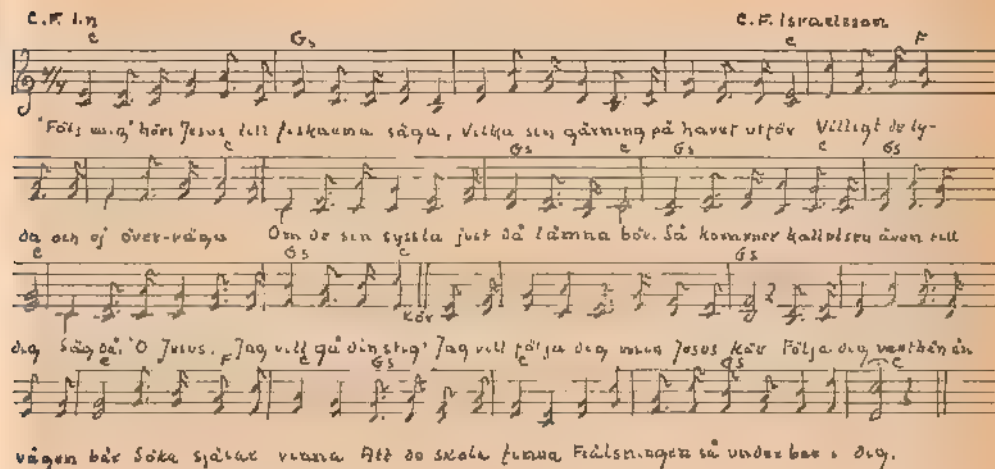 C.F. I.n C.F. Israelsson
C G5 C F
"Följ mig" hörs Jesus till fiskarna säga, Vilka sin gärning på havet utför Villigt de ly-
C G5 C G5 C G5
da och ej över-väga Om de sin syssla just då lämna bör. Så kommer kallelsen även till
C G5 C G5
Kör
dig Säg då, "O Jesus, Jag vill gå din stig" Jag vill följa dig min Jesus kär Följa dig varthän än
C F C G5 C G5 C
vägen bär Söka själar vinna Att de skola finna Frälsningen så underbar i dig.